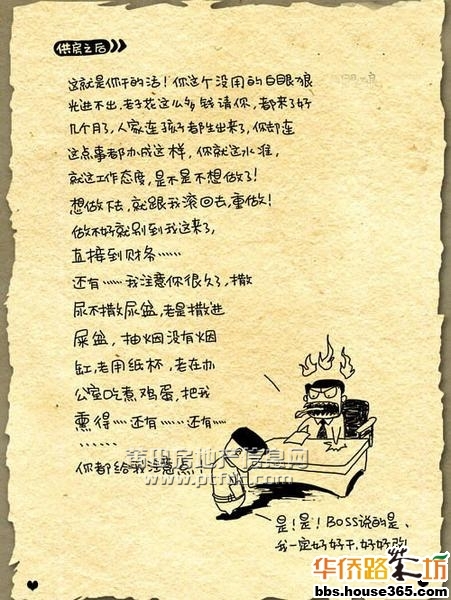 供房之后
这就是你干的活！你这个没用的白眼狼
光进不出，老子花这么多钱请你，都来了好
几个月了，人家连孩子都生出来了，你却连
这点事都办成这样，你就这水准，
就这工作态度，是不是不想做了！
想做下去，就跟我滚回去，重做！
做不好就别到我这来了，
直接到财务……
还有……我注意你很久了，撒
尿不撒尿盆，老是撒进
屎盆，抽烟没有烟
缸，老用纸杯，老在办
公室吃煮鸡蛋，把我
熏得……还有……还有……
……
你都给我注意点，
莆田房地产信息网
是！是！BOSS说的是、
我一定好好干，好好改！
华侨路茶坊
bbs.house365.com